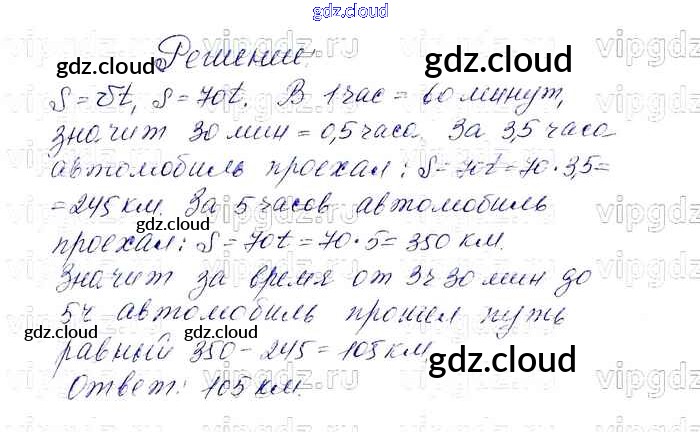 gdz.cloud
Решение:
S = vt, S = 70t. В 1 час = 60 минут,
значит 30 мин = 0,5 часа. За 3,5 часа
автомобиль проехал: S = 70t = 70 · 3,5 =
= 245 км. За 5 часов автомобиль
проехал: S = 70t = 70 · 5 = 350 км.
Значит за время от 3ч 30 мин до
5ч автомобиль прошел путь
равный 350 - 245 = 105 км.
Ответ: 105 км.
gdz.cloud
gdz.cloud
gdz.cloud
gdz.cloud
gdz.cloud
gdz.cloud